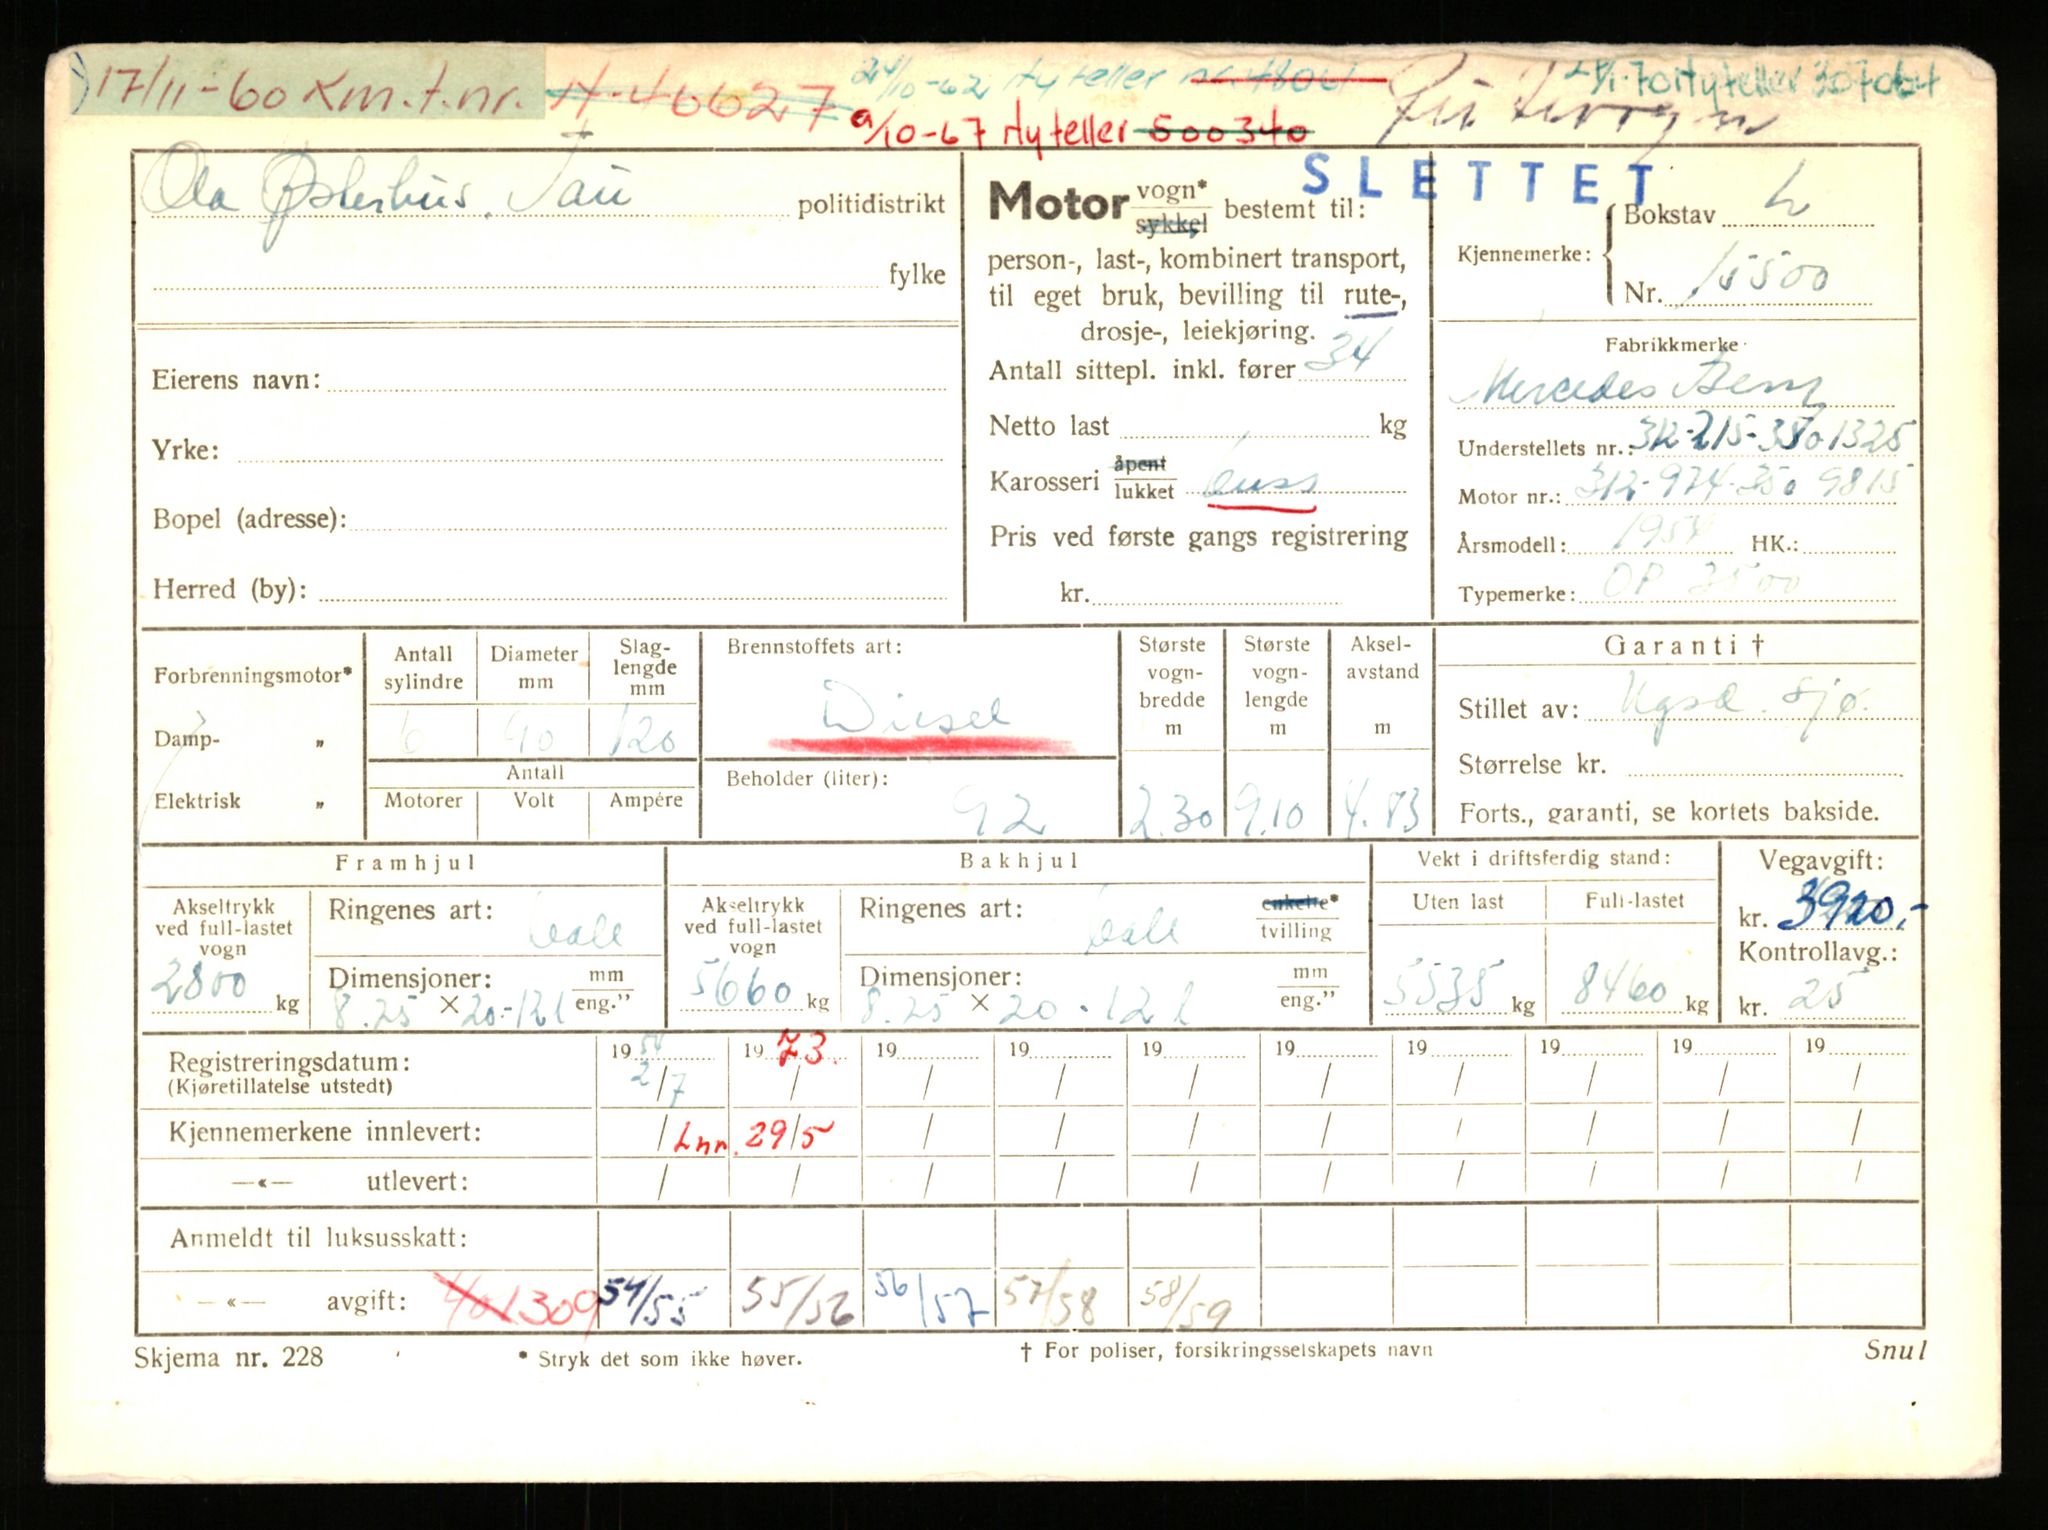 17/11-60 Km.t.nr. H-40627 24/10-62 Ny teller nr. 4806
9/10-67 Ny teller 500340 Rutevogn 28/1-70 Ny teller 307064
SLETTET
Ola Østerhus, Tau politidistrikt
fylke
Eierens navn:
Yrke:
Bopel (adresse):
Herred (by):
Motor vogn* sykkel bestemt til:
person-, last-, kombinert transport,
til eget bruk, bevilling til rute-,
drosje-, leiekjøring.
Antall sittepl. inkl. fører 34
Netto last kg
Karosseri åpent lukket buss
Pris ved første gangs registrering
kr.
Kjennemerke: Bokstav L
Nr. 15500
Fabrikkmerke
Mercedes Benz
Understellets nr.: 312-215-3501325
Motor nr.: 312-974-350 9815
Årsmodell: 1954 HK.:
Typemerke: OP 3500
Forbrenningsmotor*
Damp- „
Elektrisk „
Antall sylindre 6
Diameter mm 90
Slag-lengde mm 120
Antall
Motorer Volt Ampére
Brennstoffets art:
Diesel
Beholder (liter): 92
Største vogn-bredde m 2.30
Største vogn-lengde m 9.10
Aksel-avstand m 4.83
Garanti †
Stillet av:
Størrelse kr.
Forts., garanti, se kortets bakside.
Framhjul
Akseltrykk ved full-lastet vogn 2800 kg
Ringenes art:
Dimensjoner: mm eng.”
8.25 × 20.-12 l
Bakhjul
Akseltrykk ved full-lastet vogn 5660 kg
Ringenes art: enkelte* tvilling
Dimensjoner: mm eng.”
8.25 × 20.-12 l
Vekt i driftsferdig stand:
Uten last 5535 kg
Full-lastet 8460 kg
Vegavgift:
kr. 3920,-
Kontrollavg.:
kr. 25
Registreringsdatum: 1954 1973. 19 19 19 19 19 19 19 19
(Kjøretillatelse utstedt) 2/7 / / / / / / / / /
Kjennemerkene innlevert: / Lnr. 29/5 / / / / / / / /
—«— utlevert: / / / / / / / / / /
Anmeldt til luksusskatt:
—«— avgift: 401309 54/55 55/56 56/57 57/58 58/59
Skjema nr. 228 * Stryk det som ikke høver. † For poliser, forsikringsselskapets navn Snul